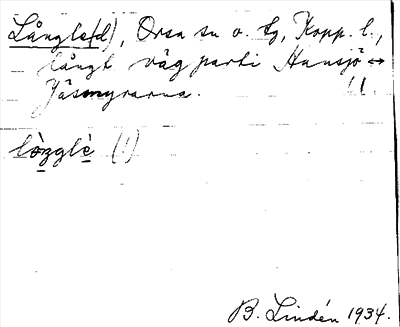 Långle(d), Orsa sn o. tg, Kopp. l.,
långt vägparti Hansjö ↔
Jäsmyrarna. 11.
lòzglè (!)
B. Lindén 1934.